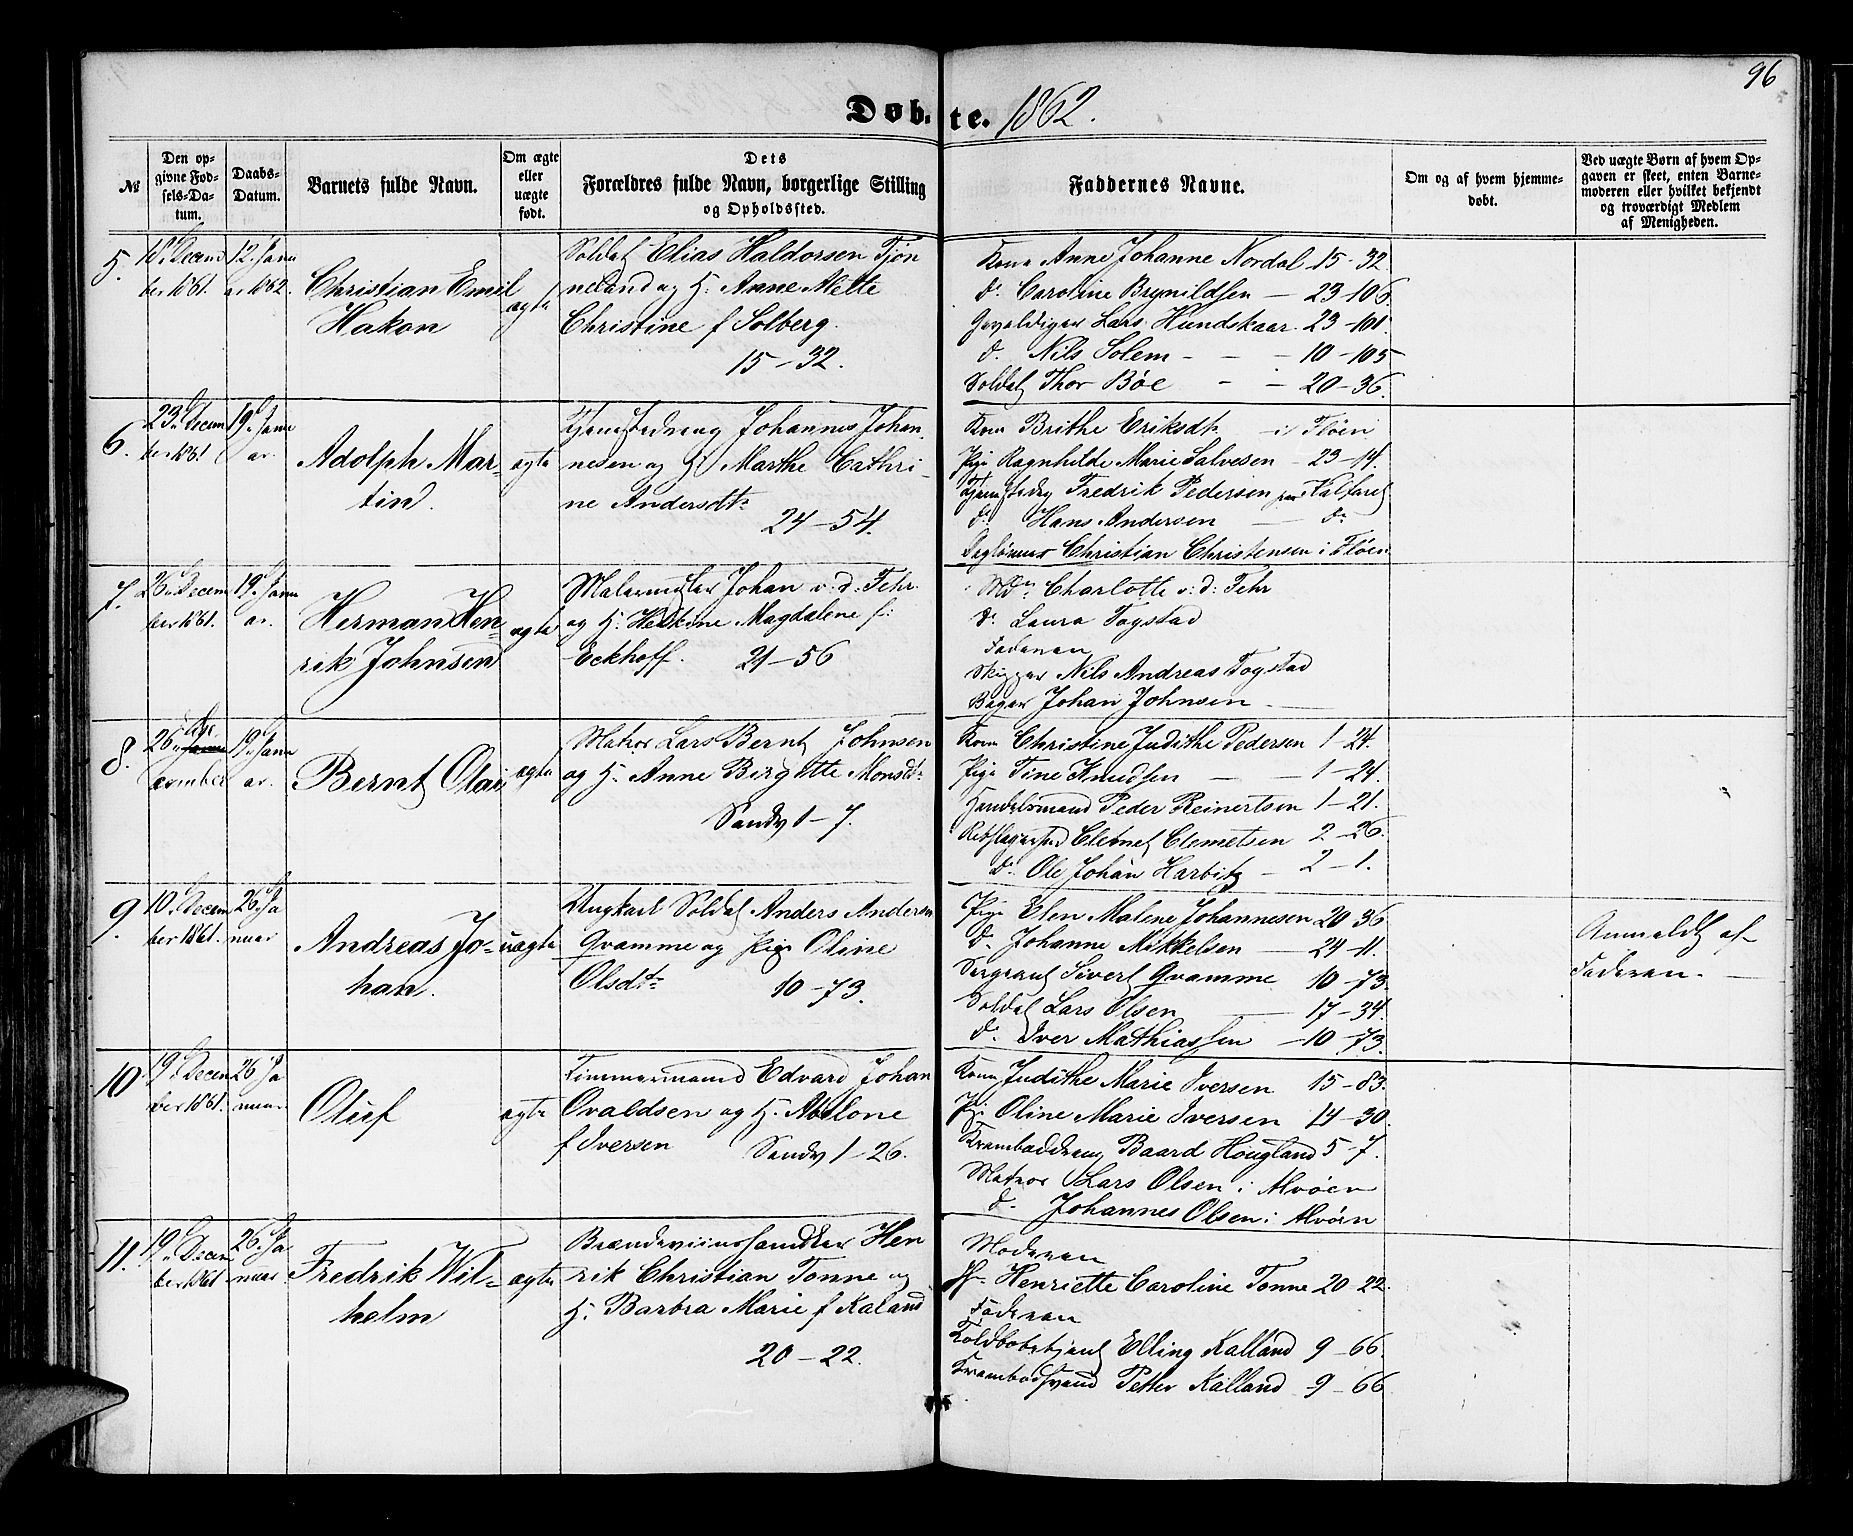 96
Døbte. 1862.
№
Den opgivne Fødsels-Datum.
Daabs-Datum.
Barnets fulde Navn.
Om ægte eller uægte født.
Dets Forældres fulde Navn, borgerlige Stilling og Opholdssted.
Faddernes Navne.
Om og af hvem hjemmedøbt.
Ved uægte Børn af hvem Opgaven er skeet, enten Barnemoderen eller hvilket bekjendt og troværdigt Medlem af Menigheden.
5.
18 Decem
ber 1861.
12. Janu
ar 1862.
Christian Emil
Hakon
ægte
Soldat Elias Haldorsen Tjøn
neland og H. Anne Mette
Christine f Solberg.
15-32.
Kone Anne Johanne Nordal 15-32
do. Caroline Brynildsen - 23-106.
Gevaldiger Lars Hundskaar. 23-101.
do. Nils Solem - - - 10-105
Soldat Thor Bøe - - 20-36.
6.
23 Decem
ber 1861
19. Janu
ar.
Adolph Mar-
tin.
ægte
Tjenestedreng Johannes Johan
nesen og H. Marthe Cathri-
ne Andersdtr
24-54.
Kone Brithe Eriksdtr i Fløen
Pige Ragnhilde Marie Salvesen - 23-14.
Fredrik Pedersen Kalfaret
do. Hans Andersen - do
Christian Christensen i Fløen
7.
26. Decem
ber 1861.
19. Janu
ar.
Herman Hen-
rik Johnsen
ægte
Malermester Johan v. d. Fehr
og H. Magdalene f:
Eckhoff. 21-56
Md. Charlotte v. d: Fehr
do. Laura Togstad
Faderen
Skipper Nils Andreas Togstad
Bager Johan Johnsen
8.
26.
19. Janu
ar.
Bernt Olai
ægte
Matros Lars Bernt Johnsen
og H. Anne Birgitte Monsdtr
Sandv 1-7.
Kone Christine Judithe Pedersen 1-24.
Pige Tine Knudsen - - 1-24.
Handelsmand Peder Reinertsen 1-21.
Clemetsen 2-26.
do. Ole Johan Harbitz - 2-1.
9.
10. Decem
ber 1861.
26. Ja
nuar
Andreas Jo-
han.
uægte
Ungkarl Soldat Anders Andersen
Qvamme og Pige Oline
Olsdtr
10-73.
Pige Elen Malene Johannesen 20-36
do. Johanne Mikkelsen - 24-11.
Sergeant Sivert Qvamme 10-73.
Soldat Lars Olsen - 17-34.
do. Iver Mathiassen - 10-73.
Anmeldt af
Faderen.
10.
19. Decem
ber 1861.
26 Ja
nuar
Oluf
ægte
Timmermand Edvard Johan
Ovaldsen og H. Abelone
f Iversen Sandv 1-26.
Kone Judithe Marie Iversen 15-83.
Pige Oline Marie Iversen 14-30.
Krambaddreng Baard Hougland 5-7.
Matros Lars Olsen i Alvøen
do. Johannes Olsen i Alvøen
11.
19. Decem
ber 1861
26. Ja
nuar
Fredrik Wil-
helm
ægte
Brændeviinshandler Hen
rik Christian Tonne og
H. Barbra Marie f Kaland
20-22.
Moderen
Henriette Caroline Tonne 20-22.
Faderen
Toldbetjent Elling Kalland 9-66.
Krambodsvend Petter Kalland 9-66